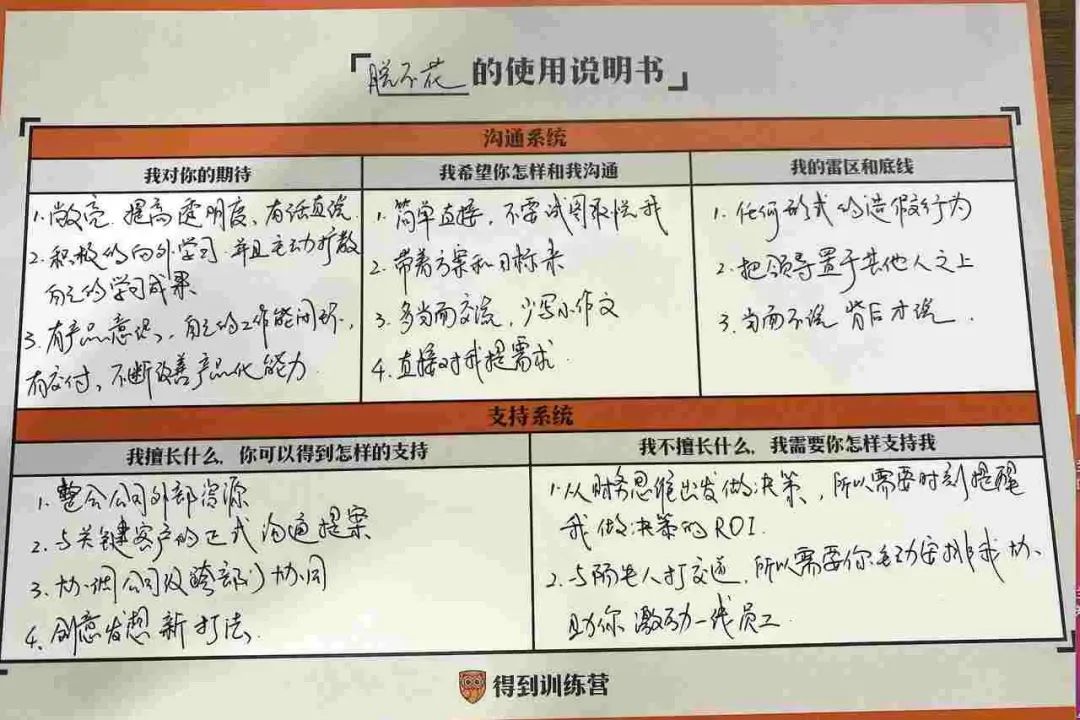 「脱不花的使用说明书」
沟通系统
我对你的期待
1. 敞亮、提高透明度、有话直说
2. 积极的向外学习 并且主动扩散
自己的学习成果
3. 有产品意识、自己的工作能闭环、
有交付、不断改善产品化能力
我希望你怎样和我沟通
1. 简单直接，不要试图取悦我
2. 带着方案和目标来
3. 多当面交流，少写小作文
4. 直接对我提需求
我的雷区和底线
1. 任何形式的造假行为
2. 把领导置于其他人之上
3. 当面不说 背后才说
支持系统
我擅长什么，你可以得到怎样的支持
1. 整合公司外部资源
2. 与关键客户的正式沟通提案
3. 协调公司及跨部门协同
4. 创意发想 新打法
我不擅长什么，我需要你怎样支持我
1. 从财务思维出发做决策，所以需要时刻提醒
我做决策的ROI.
2. 与陌生人打交道，所以需要你主动安排我协
助你 激励一线员工
得到训练营